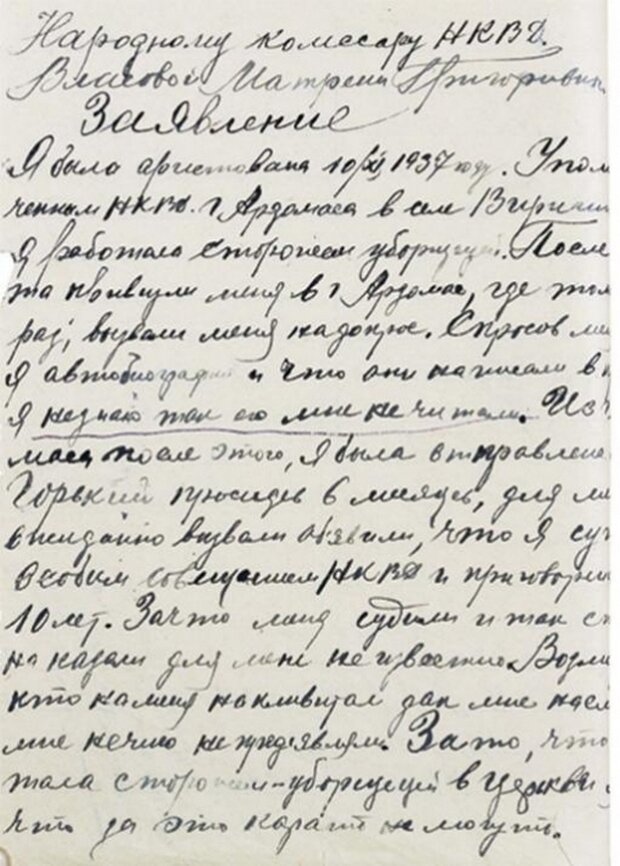 Народному комесару НКВД.
Власовой Матрены Григоривны
Заявление
Я была аристована 10/XI 1937 году. Упол
ченным НКВД. г Ардомаса в селе
я работала сторожем уборщицей. После
та меня в г Ардомас, где
раз, вызвали меня на допрос. Спросов
я автобиографию и что они написали в
я незнаю так его мне не читали. Из
маса после этого, я была отправлена
Горький просидев 6 месяцев, для
вызвали объявили, что я
особым совещанием НКВД и приговорен
10 лет. За что меня судили и так
наказали для мене не известно.
кто на меня мне
мне нечего не предявляли. За то, что
тала сторожем-уборщицей в церкви
что за это карать не могуть.